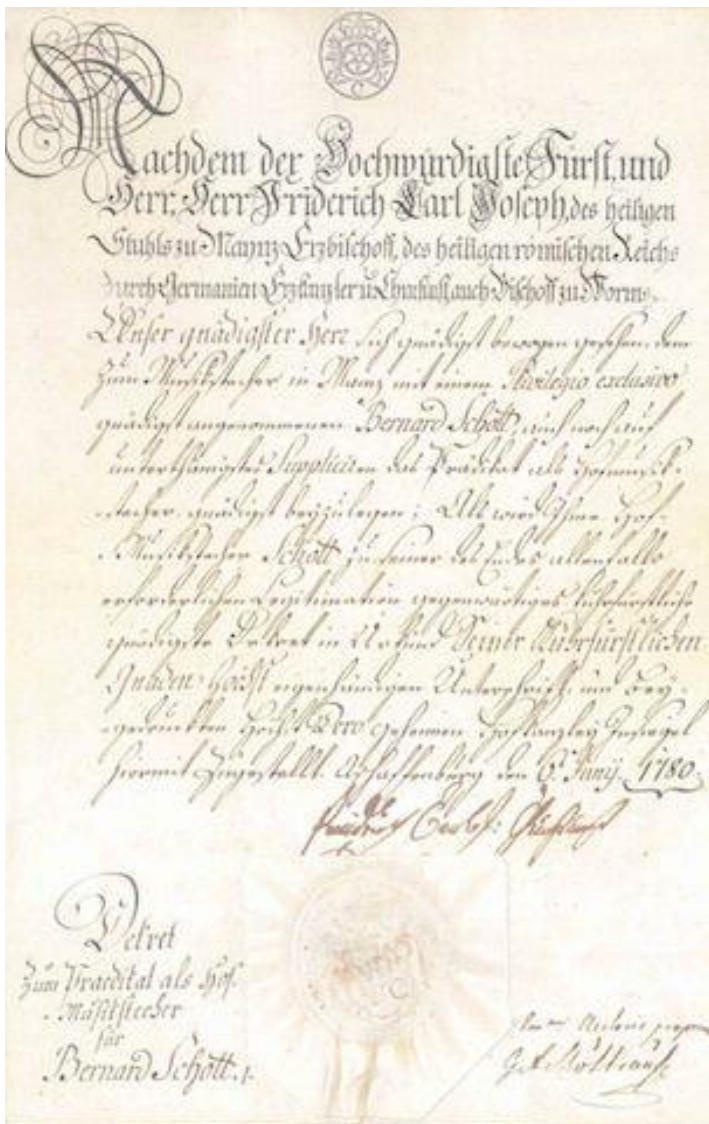 Nachdem der Hochwürdigste Fürst, und
Herr, Herr Friderich Carl Joseph, des heiligen
Stuhls zu Maynz Erzbischoff, des heiligen römischen Reichs
durch Germanien Erzkanzler u. Churfürst, auch Bischoff zu Worms.
Unser gnädigster Herr sich gnädigst bewogen gesehen, dem
zum Musikstecher in Mainz mit einem Privilegio exclusivo
gnädigst angenommenen Bernard Schott, auch noch auf
unterthänigstes Suppliciren das Prädikat als Hofmusik-
stecher gnädigst beyzulegen; Als wird Ihme Hof-
Musikstecher Schott zu seiner des Endes allenfalls
erforderlichen Legitimation gegenwärtiges kuhrfürstliche
gnädigste Dekret in Urkund Seiner Kuhrfürstlichen
Gnaden Höchst eigenhändigen Unterschrift und bey-
gedruckten Höchst Dero geheimen Hofkanzley Insiegel
hiermit zugestellt. Aschaffenburg den 6. Juny. 1780.
Dekret
Zum Praedikat als Hof-
Musikstecher
für
Bernard Schott.